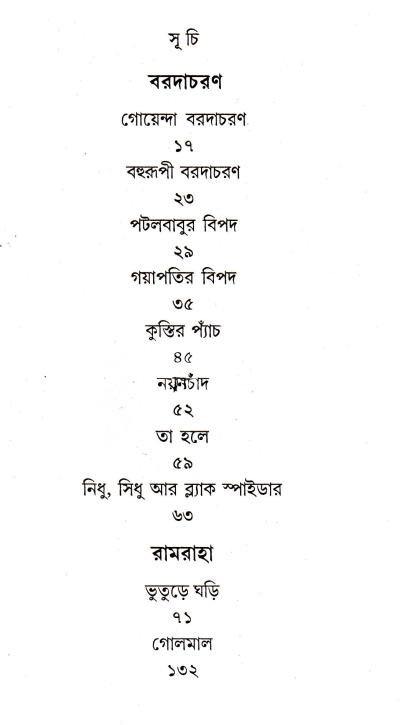 সূ চি
বরদাচরণ
গোয়েন্দা বরদাচরণ
১৭
বহুরূপী বরদাচরণ
২৩
পটলবাবুর বিপদ
২৯
গয়াপতির বিপদ
৩৫
কুস্তির প্যাঁচ
৪৫
নয়নচাঁদ
৫২
তা হলে
৫৯
নিধু, সিধু আর ব্ল্যাক স্পাইডার
৬৩
রামরাহা
ভুতুড়ে ঘড়ি
৭১
গোলমাল
১৩২